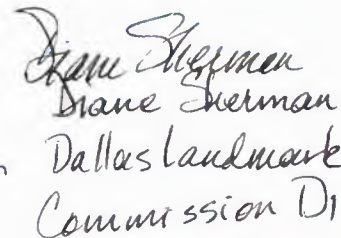 Diane Sherman
Diane Sherman
Dallas Landmark
Commission D1